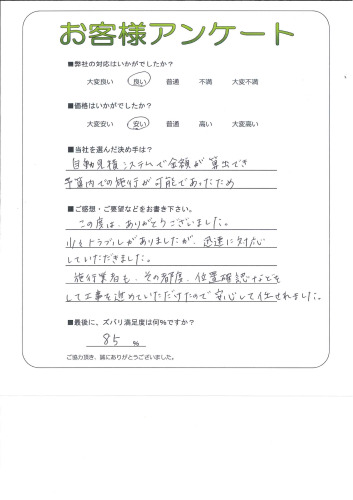 お客様アンケート
■弊社の対応はいかがでしたか?
大変良い 良い 普通 不満 大変不満
■価格はいかがでしたか?
大変安い 安い 普通 高い 大変高い
■当社を選んだ決め手は?
自動見積システムで金額が算出でき
予算内での施行が可能であったため
■ご感想・ご要望などをお書き下さい。
この度は、ありがとうございました。
少々トラブルがありましたが、迅速に対応
していただきました。
施行業者も、その都度、位置確認などを
して工事を進めていただけたので安心して任せれました。
■最後に、ズバリ満足度は何%ですか?
85 %
ご協力頂き、誠にありがとうございました。